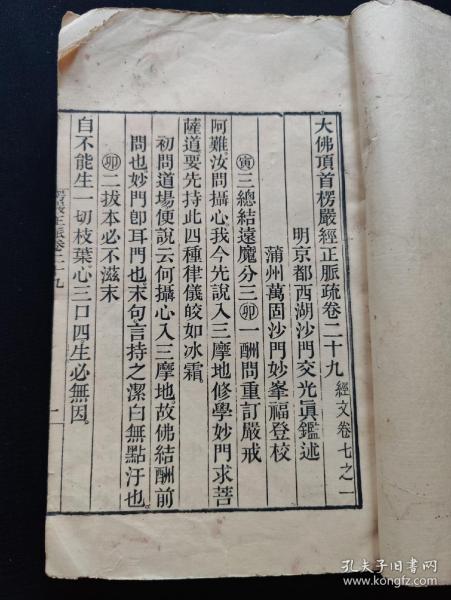 大佛頂首楞嚴經正脈疏卷二十九 經文卷七之一
明京都西湖沙門交光眞鑑述
蒲州萬固沙門妙峯福登校
寅三總結遠魔分三卯一酬問重訂嚴戒
阿難。汝問攝心我今先說入三摩地修學妙門求菩
薩道要先持此四種律儀皎如冰霜
初問道場便說云何攝心入三摩地故佛結酬前
問也妙門卽耳門也末句言持之潔白無點汙也
卯二拔本必不滋末
自不能生一切枝葉心三口四生必無因。
正脈卷二十九
一
孔夫子旧书网
www.kongfz.com